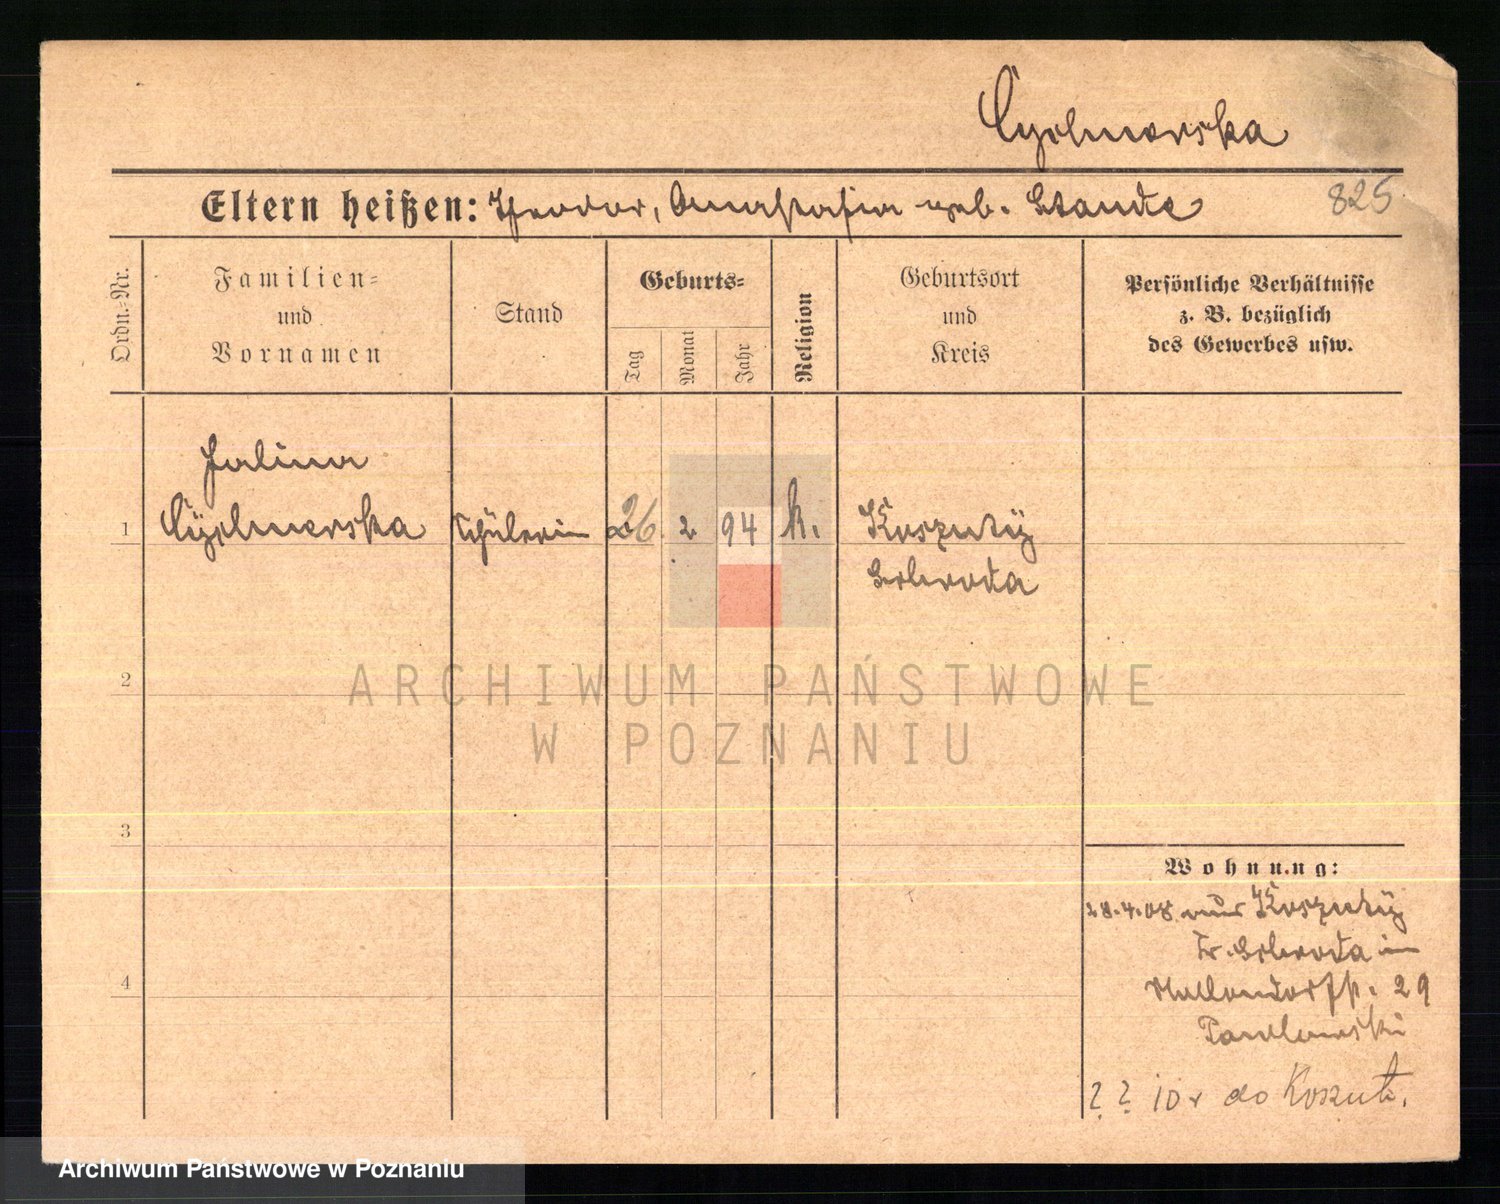 Cychnerska
Eltern heißen: Theodor, Anastasia geb. Stande
825
Ordn.-Nr.
Familien-
und
Vornamen
Stand
Geburts-
Tag
Monat
Jahr
Religion
Geburtsort
und
Kreis
Persönliche Verhältnisse
z. B. bezüglich
des Gewerbes usw.
Halina
1 Schülerin 26 2 94 k. Koszuty
Schroda
2
ARCHIWUM PAŃSTWOWE
W POZNANIU
3
Wohnung:
28.4.08 aus Koszuty
Kr. Schroda in
4
29
Pawlowski
? ? 10 do Koszut.
Archiwum Państwowe w Poznaniu